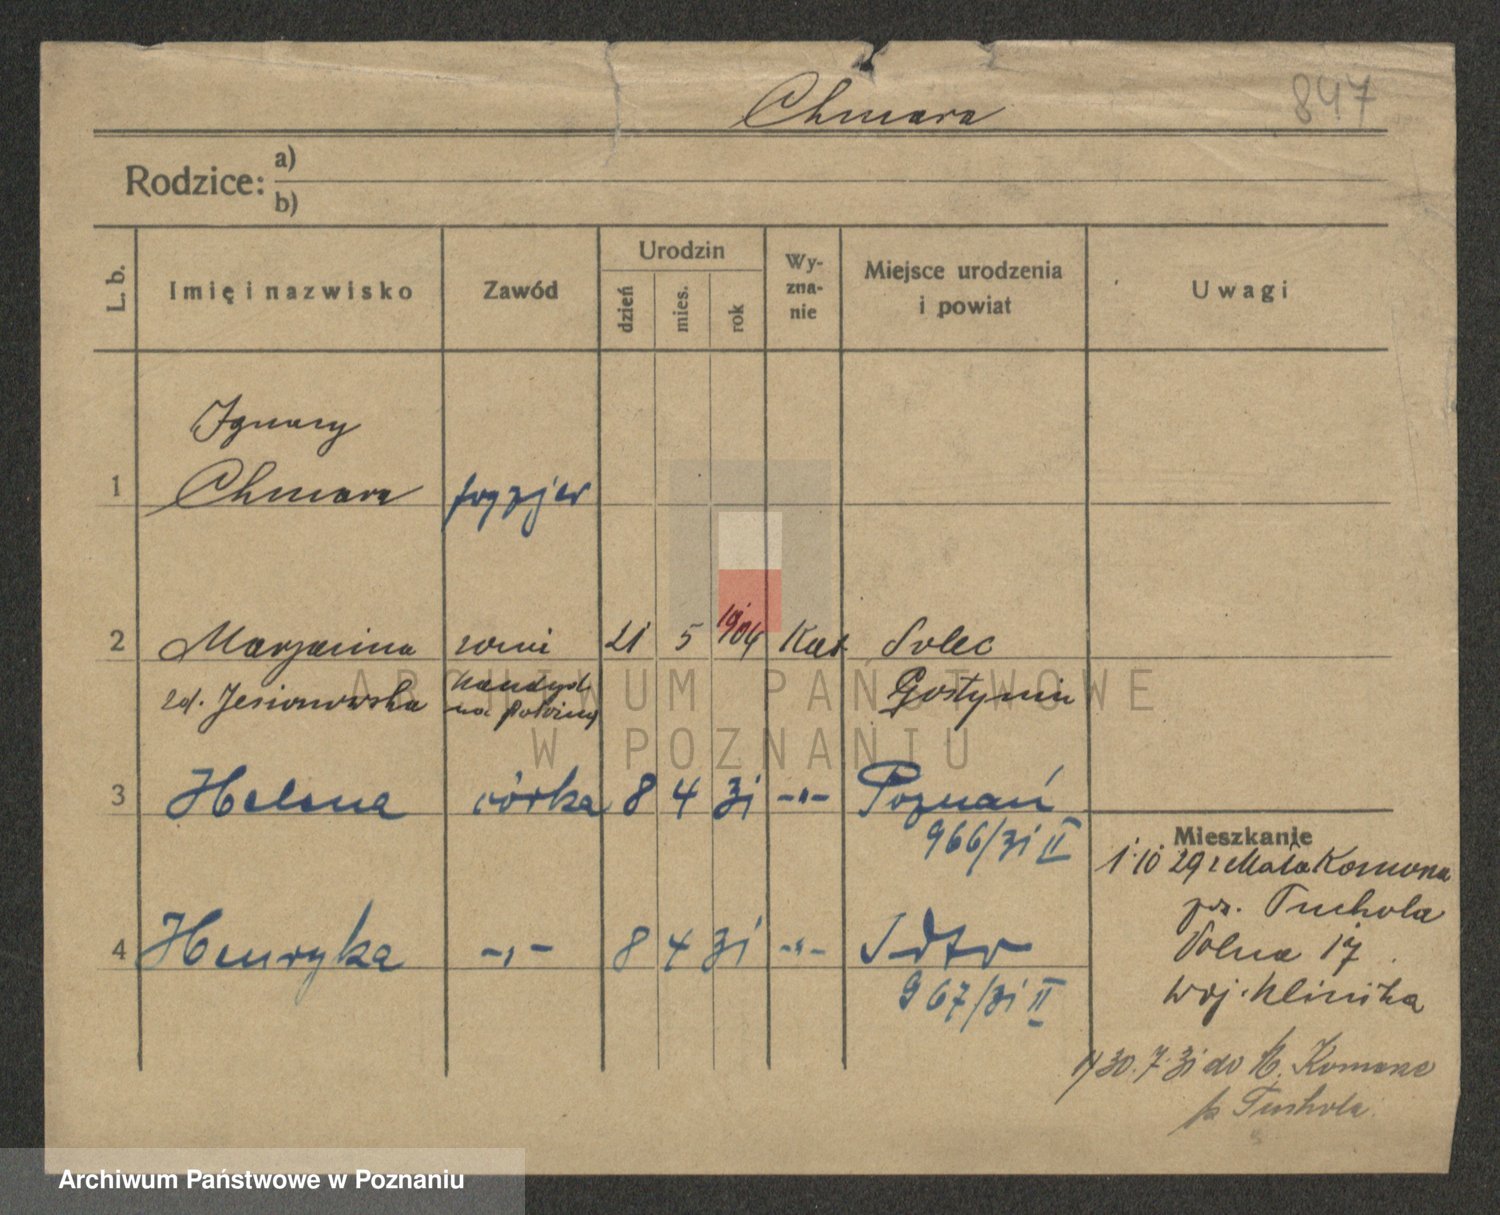 Chmara
847
Rodzice: a)
b)
L. b.
Imię i nazwisko
Zawód
Urodzin
dzień
mies.
rok
Wy-
zna-
nie
Miejsce urodzenia
i powiat
Uwagi
Ignacy
1 Chmara fryzjer
2 Marjanna 21 5 1904 Kat Solec
zd. Jesionowska Gostynin
3 Helena córka 8 4 31 -"- Poznań
966/31 II
4 Henryka -"- 8 4 31 -"-
967/31 II
Mieszkanie
1.10.29 z Mała Komorza
Tuchola
17
klinika
30.7.31 do M. Komorze
p. Tuchola
ARCHIWUM PAŃSTWOWE
W POZNANIU
Archiwum Państwowe w Poznaniu